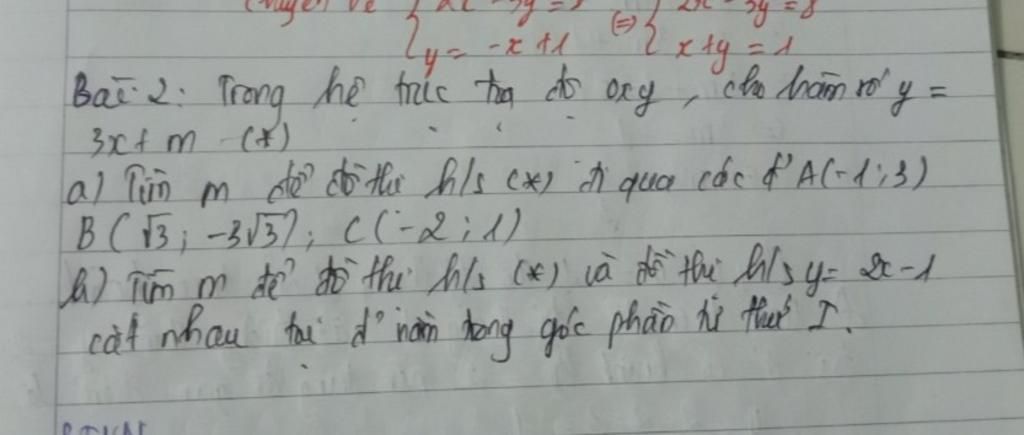 y = -x+1 (=) x+y = 1
Bài 2: Trong hệ trục tọa độ oxy, cho hàm số y =
3x + m (*)
a) Tìm m để đồ thị h/s (*) đi qua các đ' A(-1;3)
B(√3; -3√3); C(-2;1)
b) Tìm m để đồ thị h/s (*) và đồ thị h/s y= 2x-1
cắt nhau tại đ' nằm trong góc phần tư thứ I.